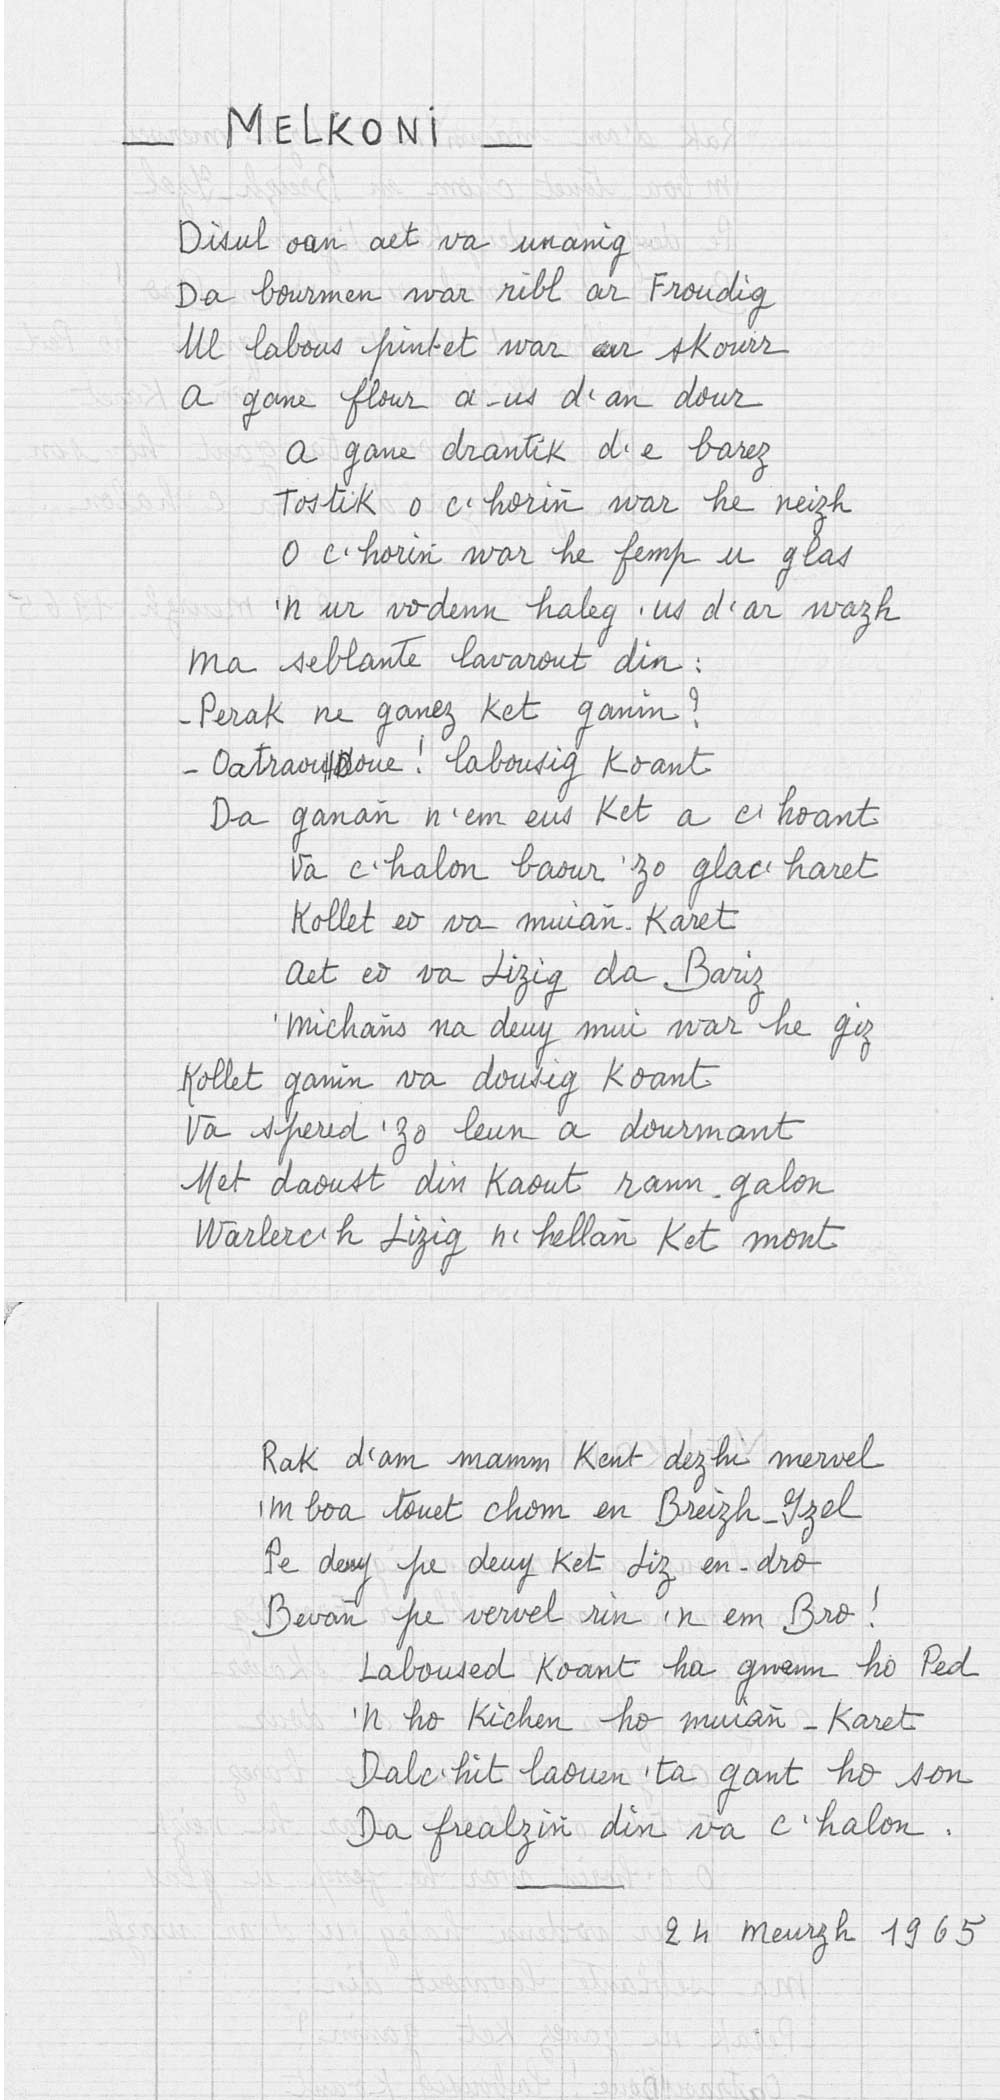 — MELKONI —
Disul oan aet va unanig
Da bourmen war ribl ar Froudig
Ul labous pintet war ur skourr
A gane flour a-us d'an dour
A gane drantik d'e barez
Tostik o c'horiñ war he neizh
O c'horiñ war he femp u glas
'N ur vodenn haleg 'us d'ar wazh
Ma seblante lavarout din :
- Perak ne ganez ket ganin ?
- Oatraou Doue ! labousig koant
Da ganañ n'em eus ket a c'hoant
Va c'halon baour 'zo glac'haret
Kollet eo va muiañ-Karet
Aet eo va Lizig da Bariz
'Michañs na deuy mui war he giz
Kollet ganin va dousig koant
Va spered 'zo leun a dourmant
Met daoust din Kaout rann-galon
Warlerc'h Lizig n'hellañ Ket mont
Rak d'am mamm Kent dezhi mervel
'm boa touet chom en Breizh-Izel
Pe deuy pe deuy Ket Liz en-dro
Bevañ pe vervel rin 'n em Bro !
Laboused Koant ha gwenn ho Ped
'N ho Kichen ho muiañ-Karet
Dalc'hit laouen 'ta gant ho son
Da frealziñ din va c'halon .
24 Meurzh 1965